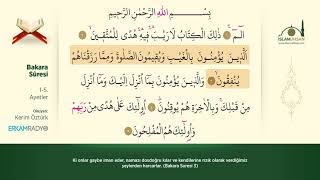 بِسْمِ اللهِ الرَّحْمٰنِ الرَّحِيمِ
الٓمٓ ۝ ذٰلِكَ الْكِتَابُ لَا رَيْبَ فِيهِ هُدًى لِلْمُتَّقِينَ ۝
اَلَّذِينَ يُؤْمِنُونَ بِالْغَيْبِ وَيُقِيمُونَ الصَّلٰوةَ وَمِمَّا رَزَقْنَاهُمْ
يُنْفِقُونَ ۝ وَالَّذِينَ يُؤْمِنُونَ بِمَٓا اُنْزِلَ اِلَيْكَ وَمَٓا اُنْزِلَ
مِنْ قَبْلِكَ وَبِالْاٰخِرَةِ هُمْ يُوقِنُونَ ۝ اُو۬لٰٓئِكَ عَلٰى هُدًى مِنْ رَبِّهِمْ
وَاُو۬لٰٓئِكَ هُمُ الْمُفْلِحُونَ ۝
Bakara
Sûresi
1-5.
Ayetler
Okuyan:
Kerim Öztürk
ERKAMRADYO
İSLAM&İHSAN
Ki onlar gaybe iman eder, namazı dosdoğru kılar ve kendilerine rızık olarak verdiğimiz
şeylerden harcarlar. (Bakara Suresi 3)